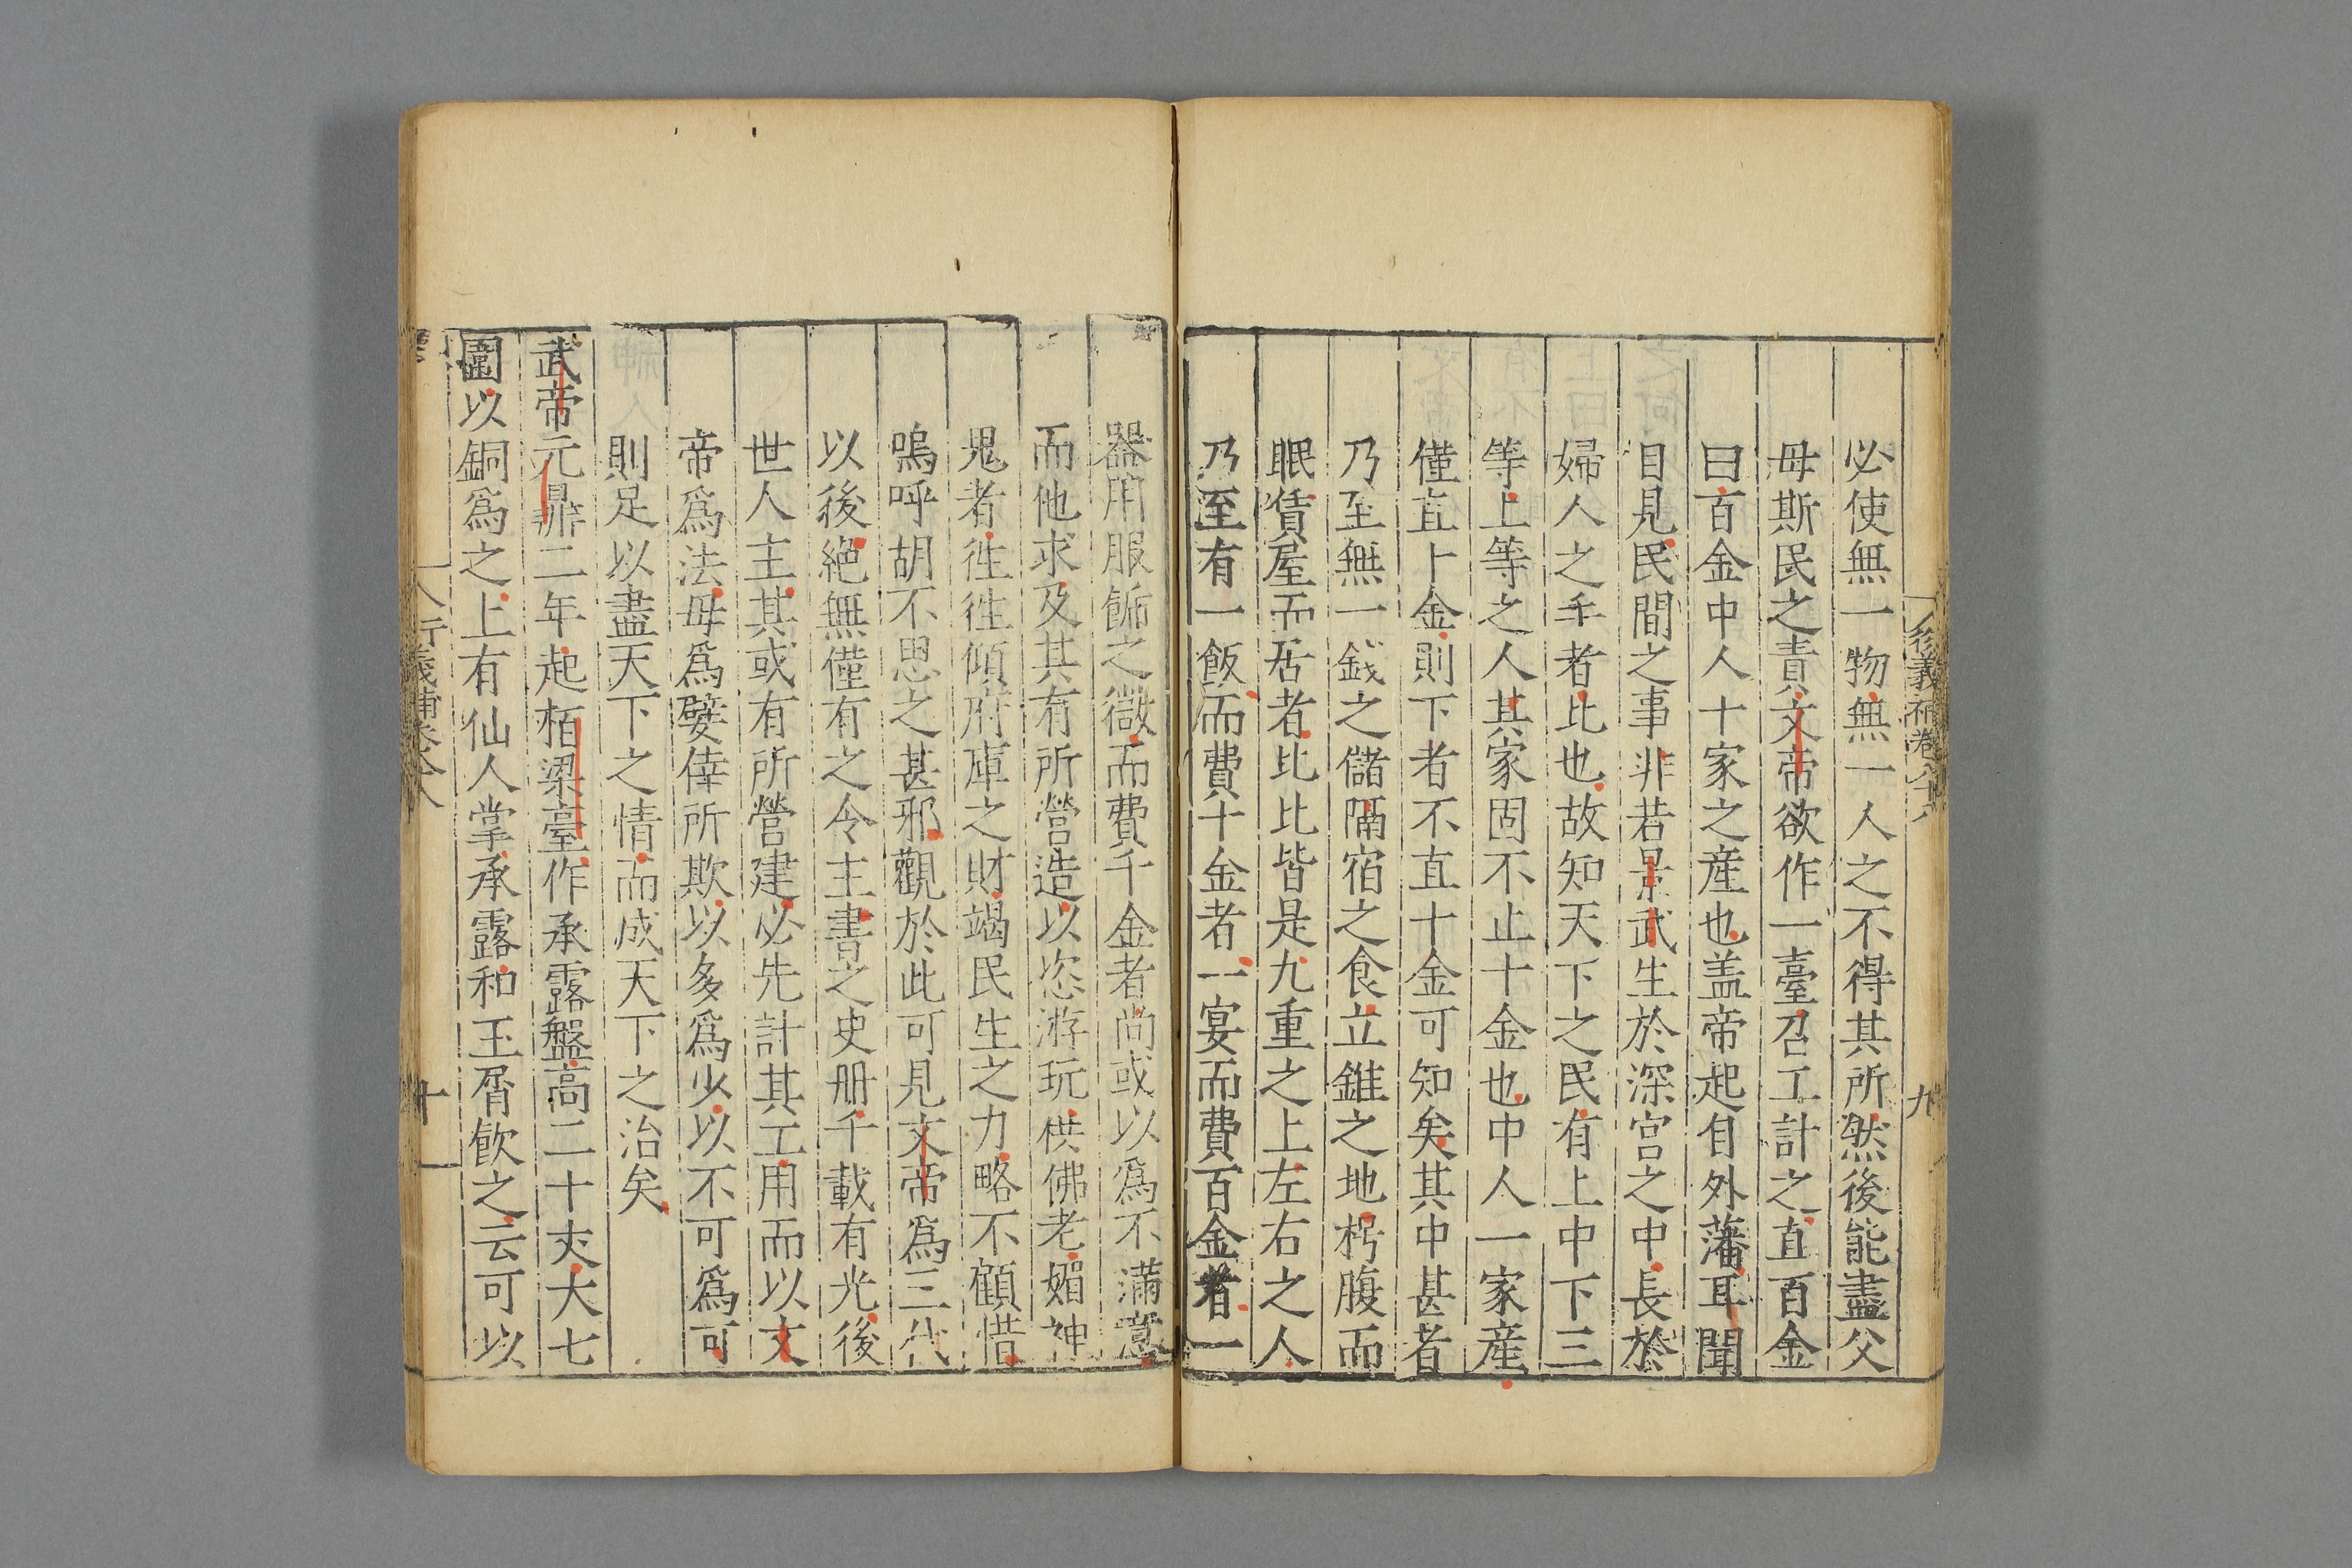 衍義補卷八十八
九
必使無一物無一人之不得其所然後能盡父
母斯民之責文帝欲作一臺召工計之直百金
曰百金中人十家之產也盖帝起自外藩耳聞
目見民間之事非若景武生於深宮之中長於
婦人之手者比也故知天下之民有上中下三
等上等之人其家固不止十金也中人一家產
僅直十金則下者不直十金可知矣其中甚者
乃至無一錢之儲隔宿之食立錐之地枵腹而
眠賃屋而居者比比皆是九重之上左右之人
乃至有一飯而費十金者一宴而費百金者一
器用服飾之微而費千金者尚或以爲不滿意
而他求及其有所營造以恣游玩供佛老媚神
鬼者徃徃傾府庫之財竭民生之力略不顧惜
嗚呼胡不思之甚邪觀於此可見文帝爲三代
以後絕無僅有之令主書之史册千載有光後
世人主其或有所營建必先計其工用而以文
帝爲法毋爲嬖倖所欺以多爲少以不可爲可
則足以盡天下之情而成天下之治矣
武帝元鼎二年起栢梁臺作承露盤高二十丈大七
圍以銅爲之上有仙人掌承露和玉屑飲之云可以
衍義補卷八十八
十